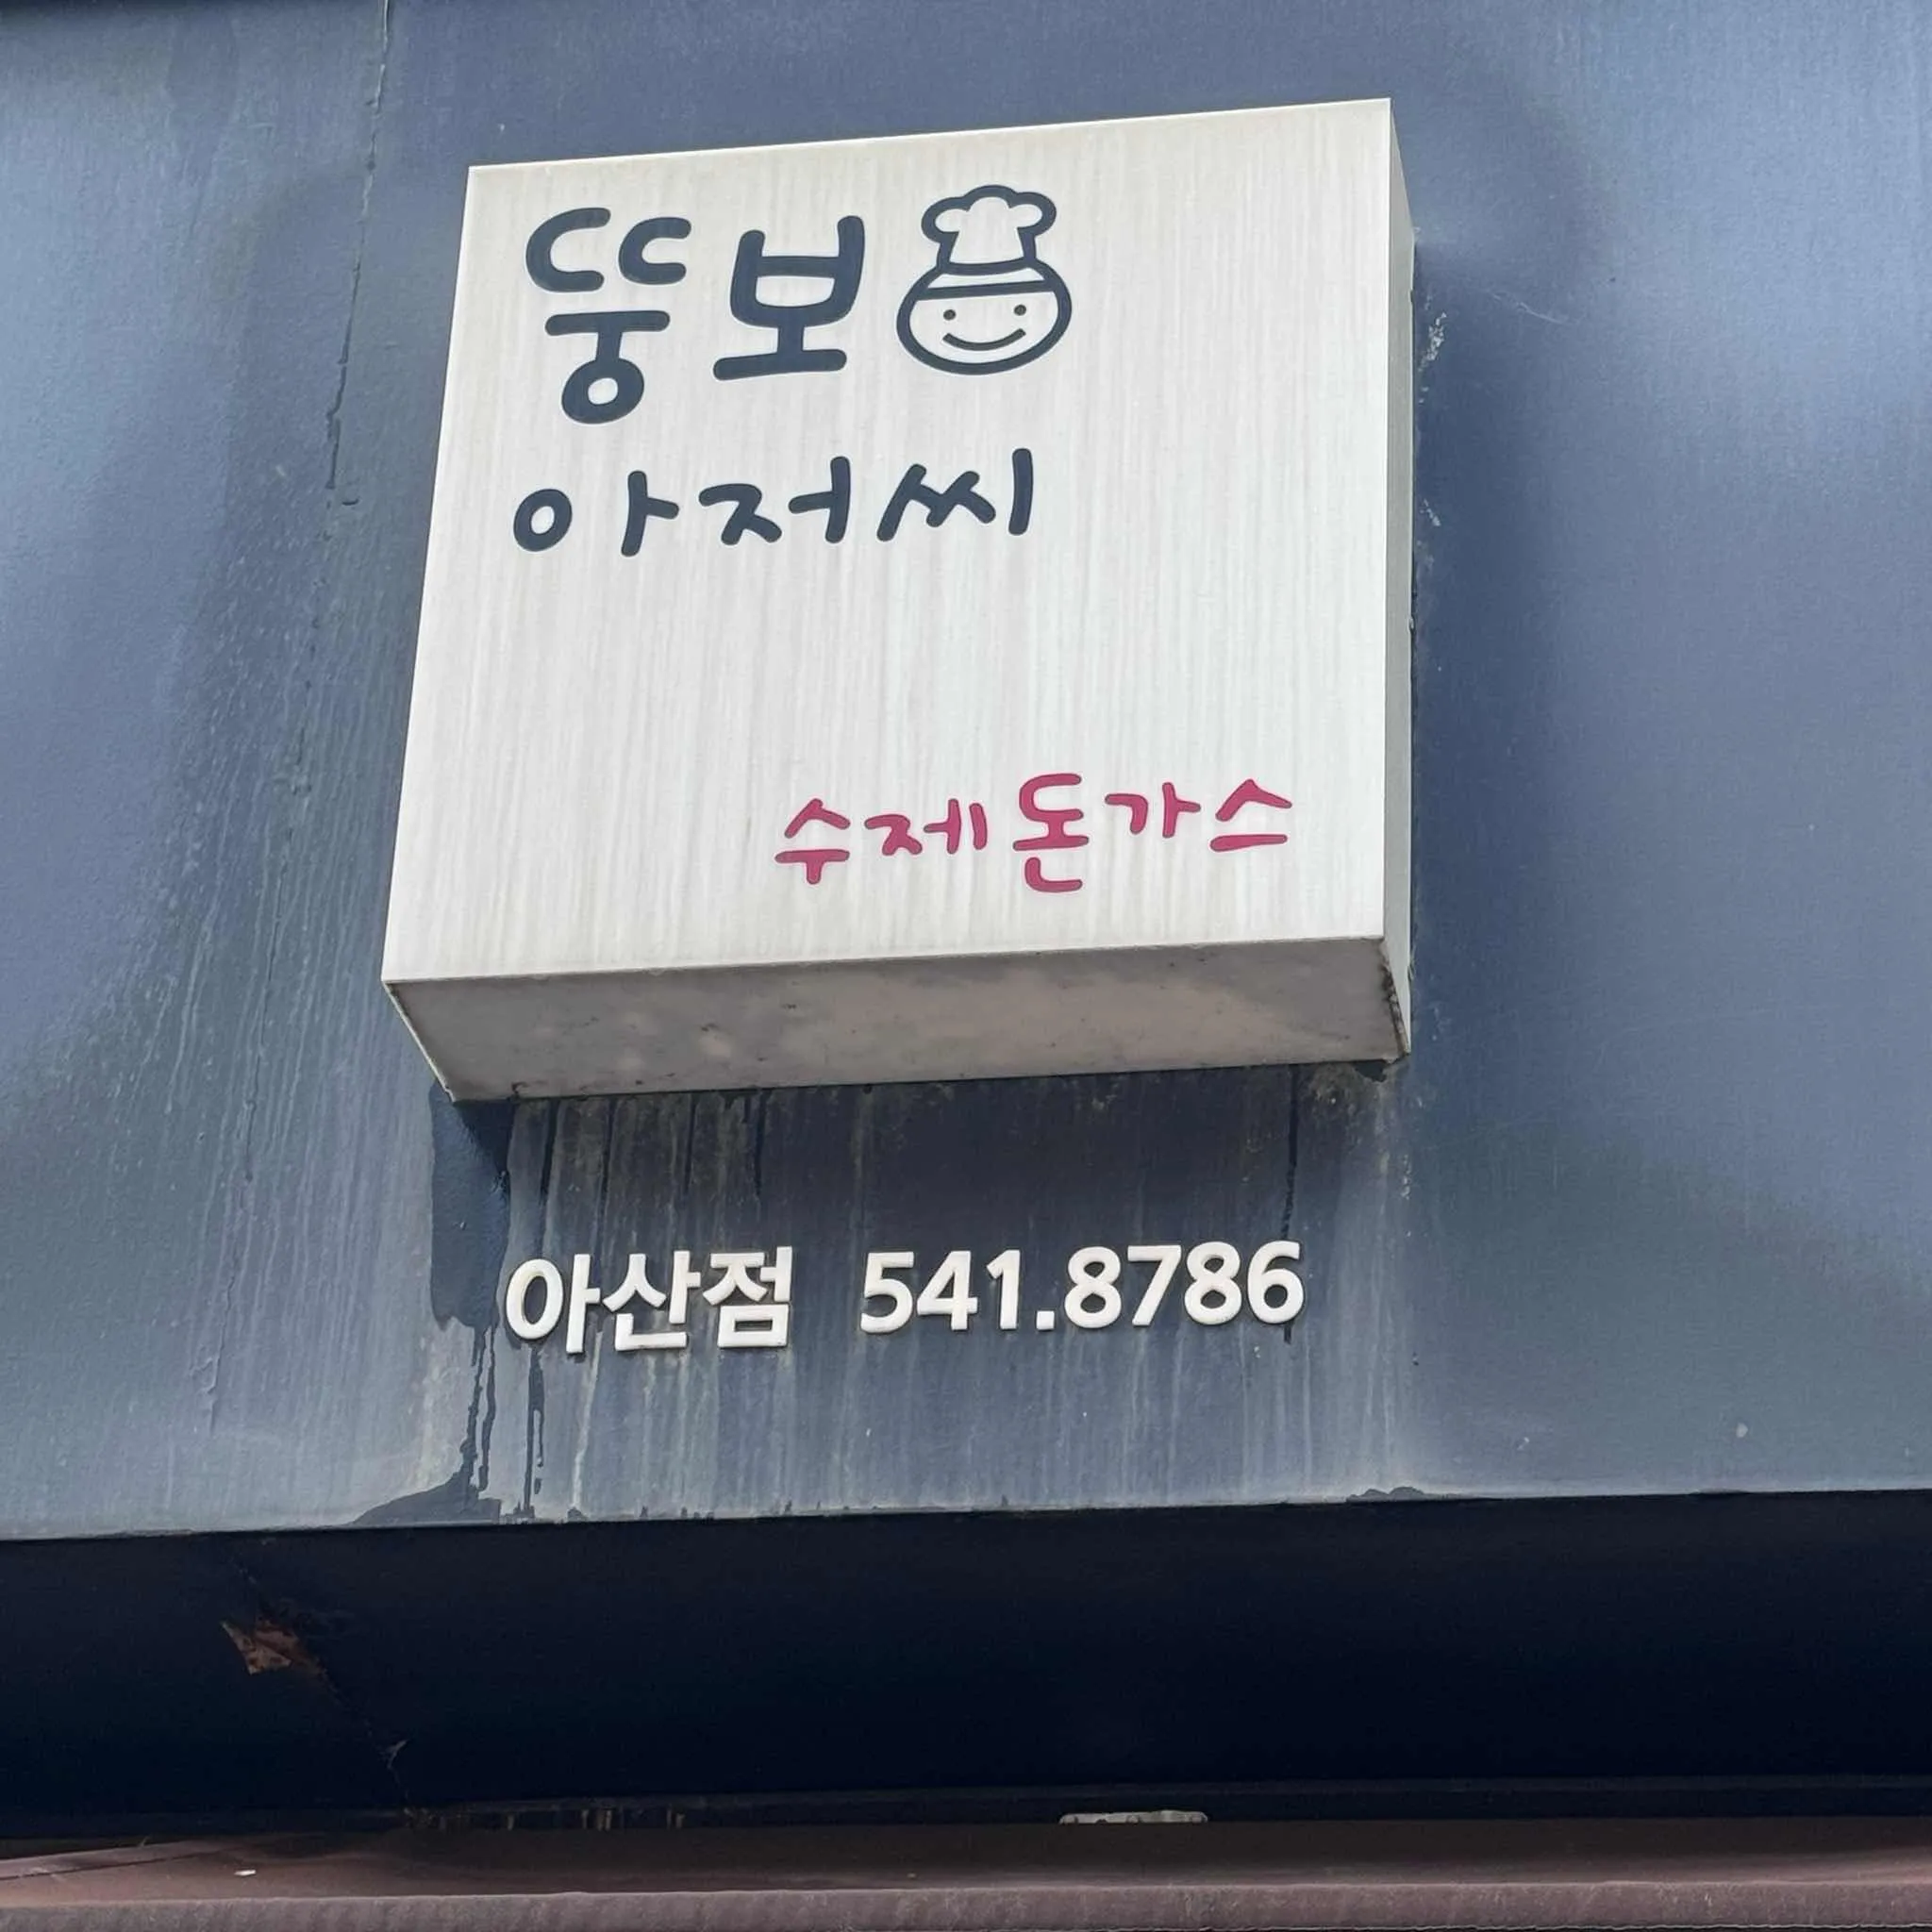 뚱보
아저씨
수제돈가스
아산점 541.8786